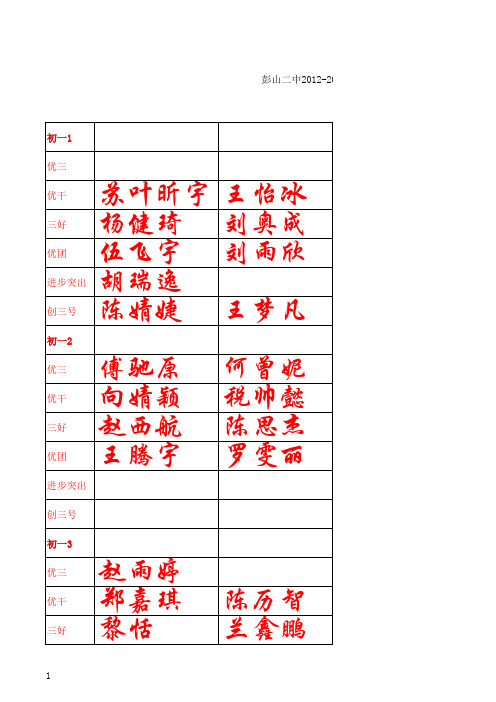 彭山二中2012-20
初一1
优三
优干 苏叶昕宇 王怡冰
三好 杨健琦 刘奥成
优团 伍飞宇 刘雨欣
进步突出 胡瑞逸
创三号 陈婧婕 王梦凡
初一2
优三 傅驰原 何曾妮
优干 向婧颖 税帅懿
三好 赵西航 陈思杰
优团 王腾宇 罗雯丽
进步突出
创三号
初一3
优三 赵雨婷
优干 郑嘉琪 陈历智
三好 黎恬 兰鑫鹏
1